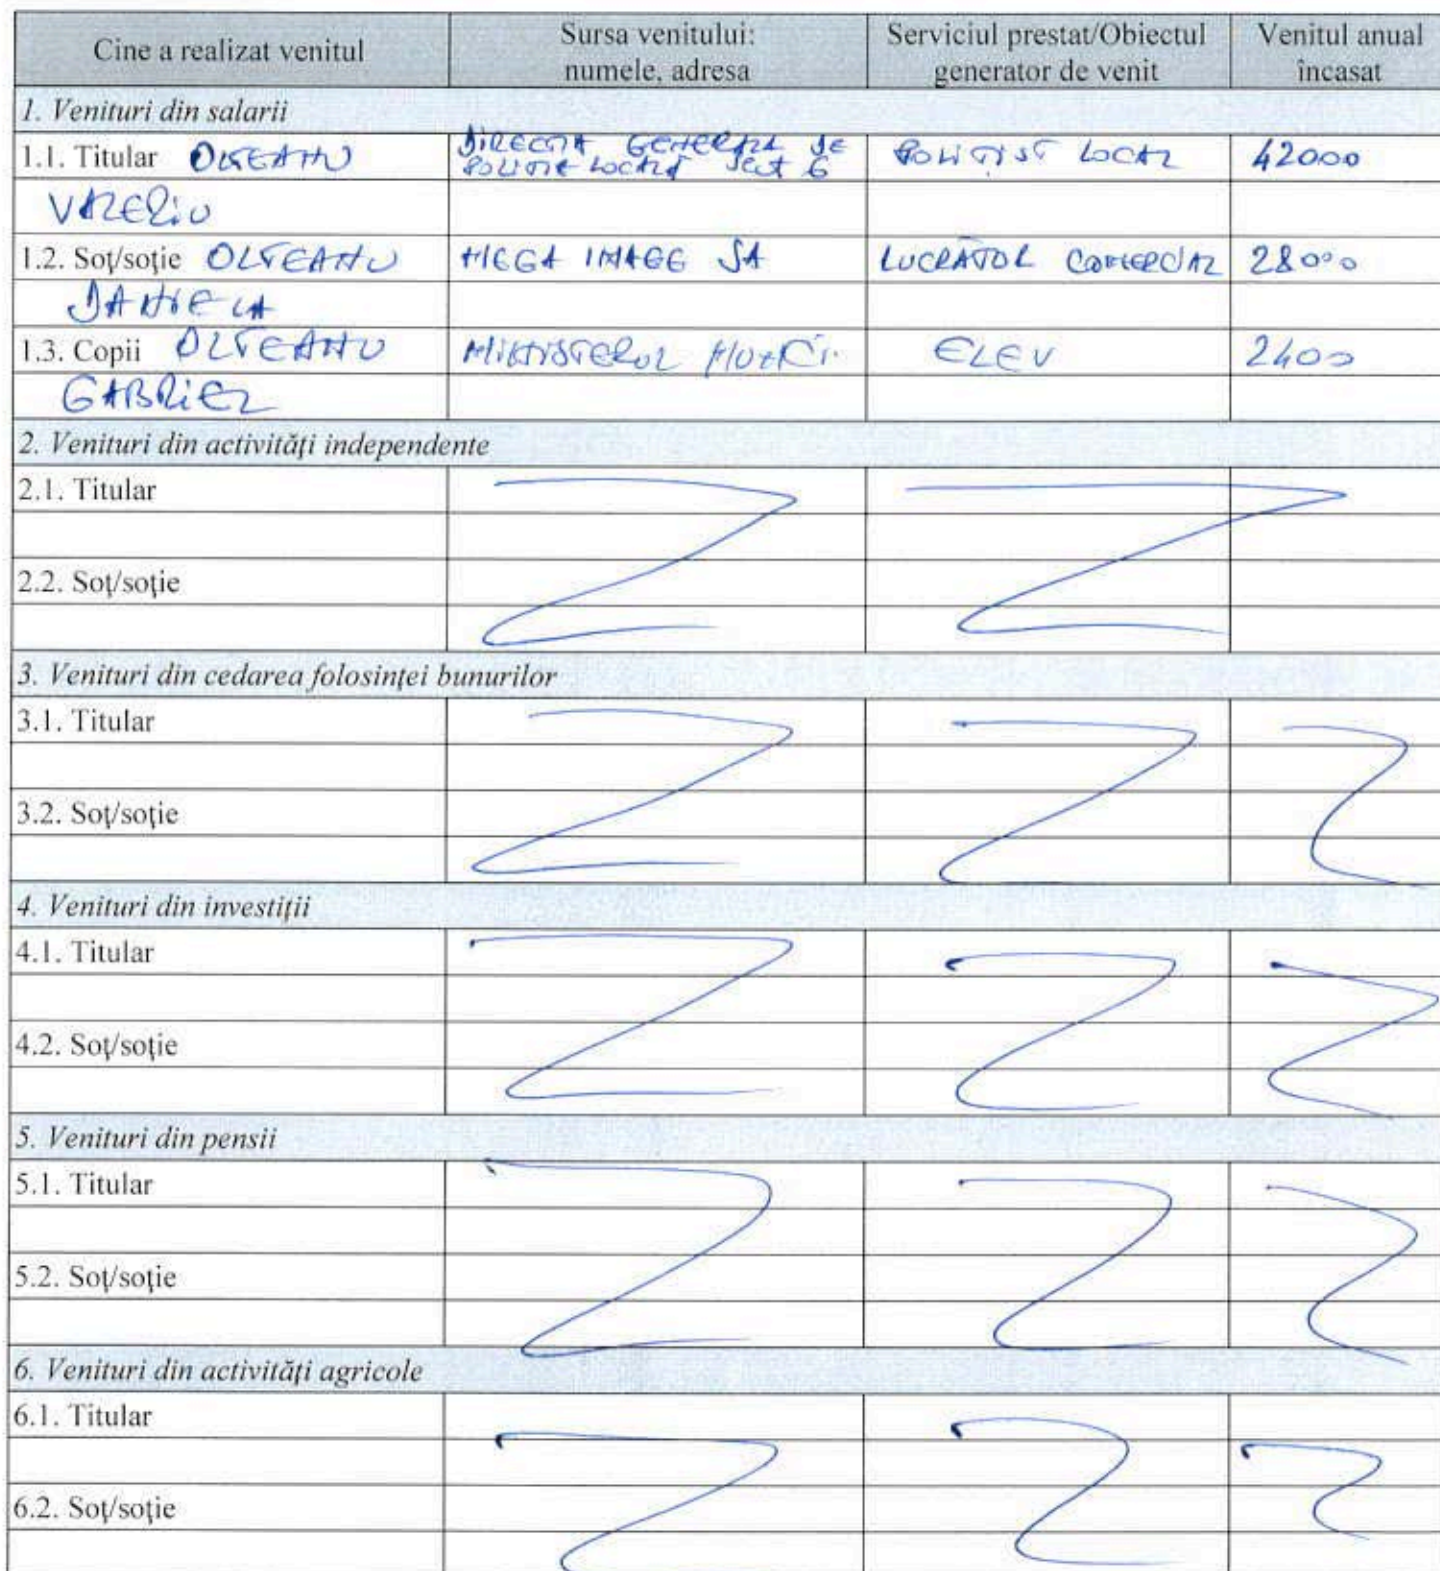 Cine a realizat venitul
Sursa venitului:
numele, adresa
Serviciul prestat/Obiectul
generator de venit
Venitul anual
încasat
1. Venituri din salarii
1.1. Titular OLTEANU
VALERIU
DIRECTIA GENERALA DE
POLITIE LOCALĂ Sect 6
POLIȚIST LOCAL
42000
1.2. Soț/soție OLTEANU
DANIELA
MEGA IMAGE SA
LUCRĂTOR COMERCIAL
28000
1.3. Copii OLTEANU
GABRIEL
MINISTERUL MUNCI.
ELEV
2400
2. Venituri din activități independente
2.1. Titular
2.2. Soț/soție
3. Venituri din cedarea folosinței bunurilor
3.1. Titular
3.2. Soț/soție
4. Venituri din investiții
4.1. Titular
4.2. Soț/soție
5. Venituri din pensii
5.1. Titular
5.2. Soț/soție
6. Venituri din activități agricole
6.1. Titular
6.2. Soț/soție